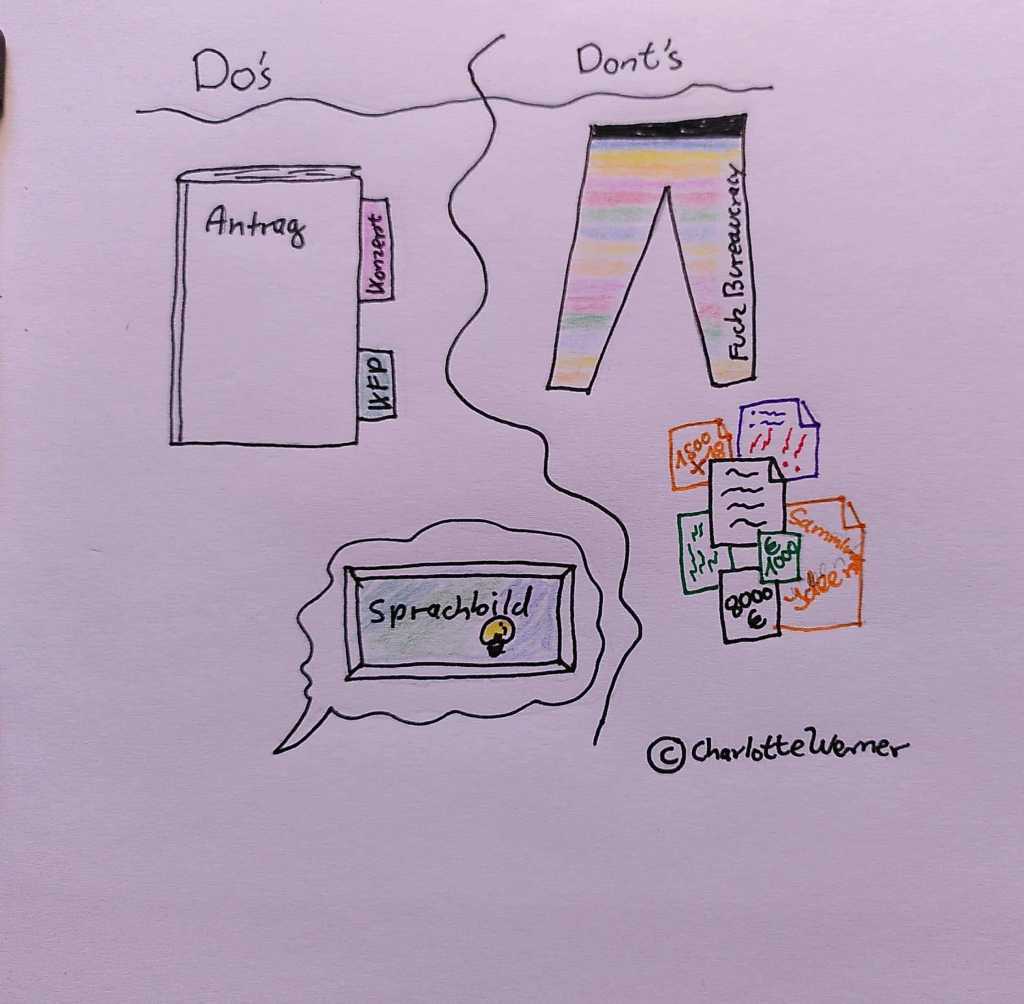 Do's
Dont's
Antrag
Konzept
KFP
Fuck Bureaucracy
1500
x 18
Sammlung
Ideen
€
1000
8000
€
Sprachbild
© Charlotte Werner